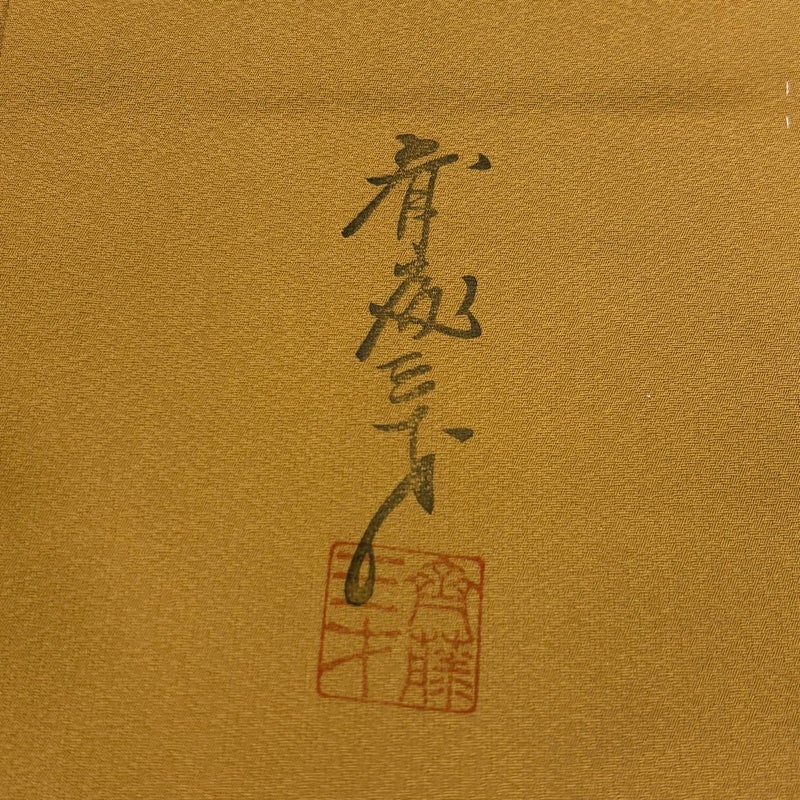 斉藤三才
齊藤
三才